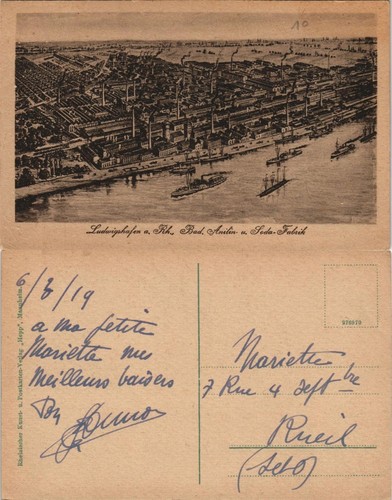 10
Ludwigshafen a. Rh., Bad. Anilin- u. Soda-Fabrik
6/3/19
a ma petite
Mariette mes
Meilleurs baisers
Rheinischer Kunst- u. Postkarten-Verlag „Hepp", Mannheim.
978079
Mariette
7 Rue 4 Sept bre
Rueil
(S et O)